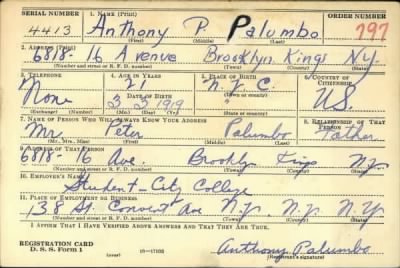 SERIAL NUMBER 1. NAME (Print) ORDER NUMBER
4413 Anthony P. Palumbo 797
(First) (Middle) (Last)
2. ADDRESS (Print)
6818- 16 Avenue Brooklyn Kings N.Y.
(Number and street or R. F. D. number) (Town) (County) (State)
3. TELEPHONE 4. AGE IN YEARS 5. PLACE OF BIRTH 6. COUNTRY OF CITIZENSHIP
None 21 N.Y.C. U.S.
DATE OF BIRTH (Town or county)
3 3 1919 "
(Exchange) (Number) (Mo.) (Day) (Yr.) (State or country)
7. NAME OF PERSON WHO WILL ALWAYS KNOW YOUR ADDRESS 8. RELATIONSHIP OF THAT PERSON
Mr. Peter Palumbo Father
(Mr., Mrs., Miss) (First) (Middle) (Last)
9. ADDRESS OF THAT PERSON
6818- 16 Ave. Brooklyn Kings N.Y.
(Number and street or R. F. D. number) (Town) (County) (State)
10. EMPLOYER'S NAME
Student - City College
11. PLACE OF EMPLOYMENT OR BUSINESS
138 St. Convent Ave N.Y. N.Y. N.Y.
(Number and street or R. F. D. number) (Town) (County) (State)
I AFFIRM THAT I HAVE VERIFIED ABOVE ANSWERS AND THAT THEY ARE TRUE.
REGISTRATION CARD
D. S. S. Form 1 16-17105 Anthony Palumbo
(Registrant's signature)